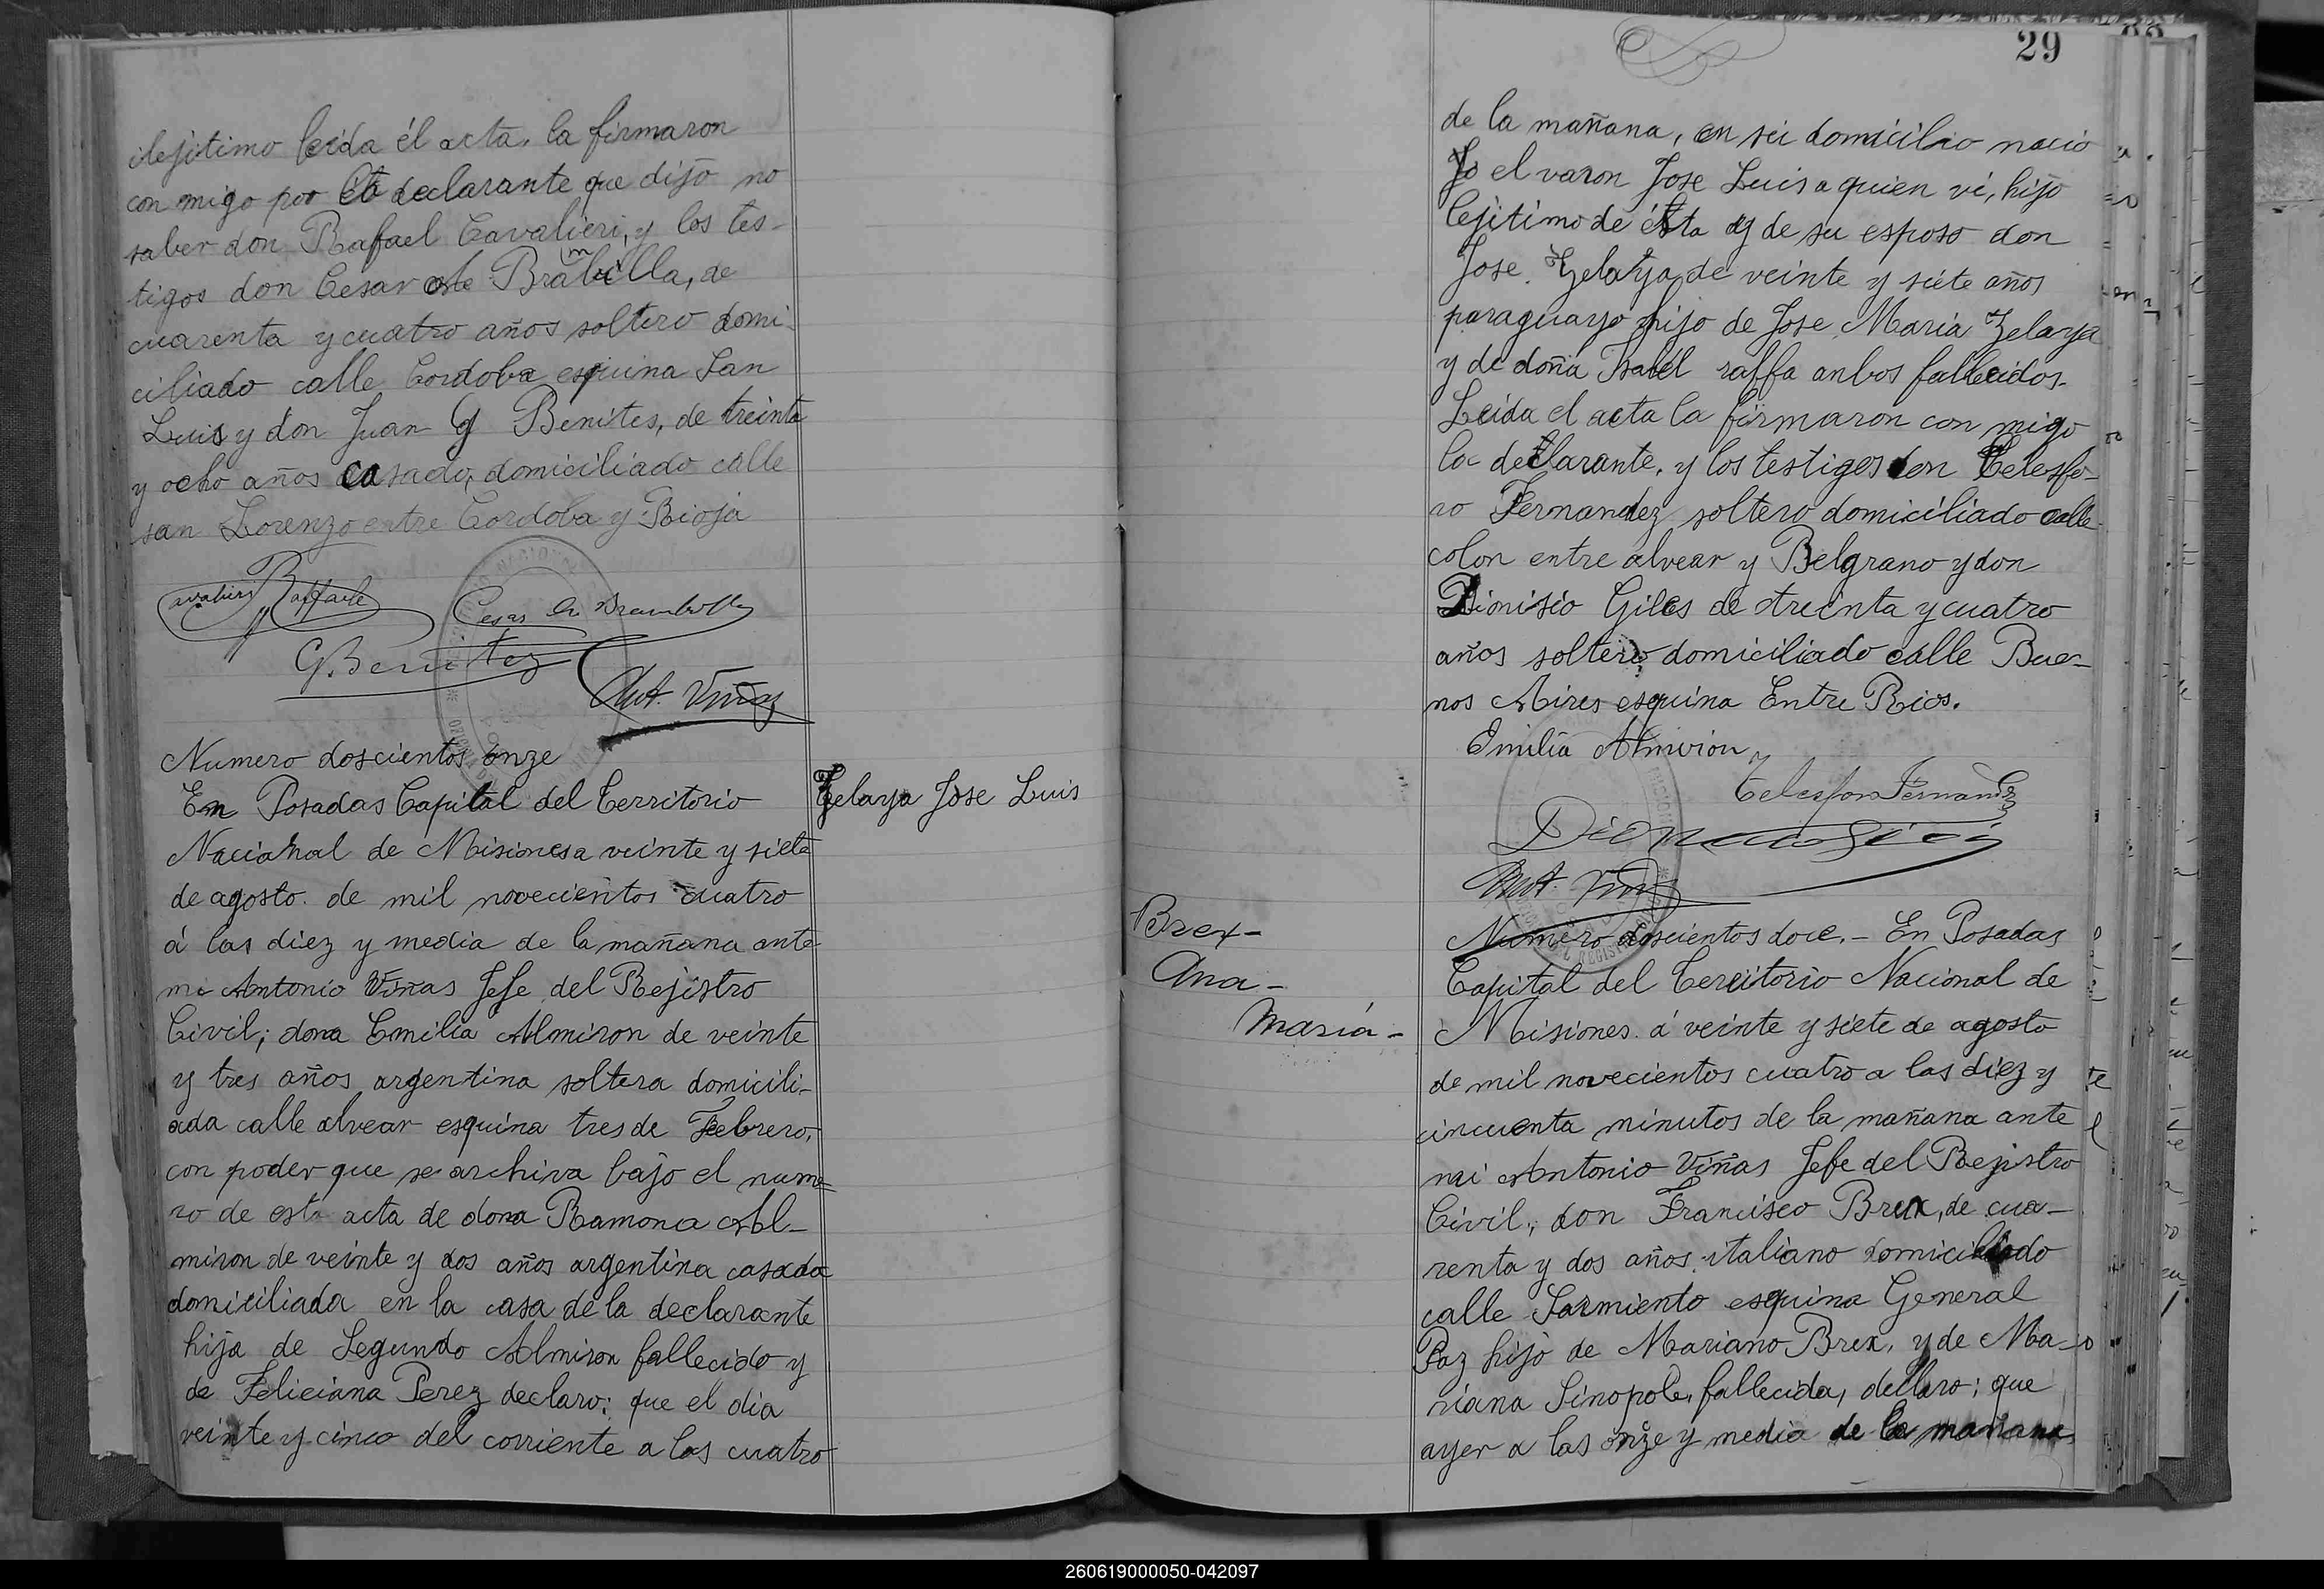 ilejitimo leida él acta, la firmaron
con migo por el declarante que dijo no
saber don Rafael Cavalieri, y los tes-
tigos don Cesar de Brambilla, de
cuarenta y cuatro años soltero domi-
ciliado calle Cordoba esquina San
Luis y don Juan G Benites, de treinta
y ocho años casado, domiciliado calle
san Lorenzo entre Cordoba y Rioja
Cavalieri Raffaele
Cesar de Brambilla
G. Benitez
Ant. Viñas
Numero doscientos onze
En Posadas Capital del Territorio
Nacional de Misiones a veinte y siete
de agosto de mil novecientos cuatro
á las diez y media de la mañana ante
mi Antonio Viñas Jefe del Rejistro
Civil; dona Emilia Almiron de veinte
y tres años argentina soltera domicili-
ada calle alvear esquina tres de Febrero,
con poder que se archiva bajo el nume-
ro de esta acta de dona Ramona Al-
miron de veinte y dos años argentina casada
domiciliada en la casa de la declarante
hija de Segundo Almiron fallecido y
de Feliciana Perez declaro: que el dia
veinte y cinco del corriente a las cuatro
Zelaya Jose Luis
29
de la mañana, en su domicilio nacio
el varon Jose Luis a quien vi, hijo
lejitimo de ésta y de su esposo don
Jose Zelaya de veinte y siete años
paraguayo hijo de Jose Maria Zelaya
y de doña Isabel raffa anbos fallecidos.
Leida el acta la firmaron con migo
la declarante, y los testigos don Telesfo-
ro Fernandez soltero domiciliado calle
colon entre alvear y Belgrano y don
Dionisio Giles de treinta y cuatro
años soltero domiciliado calle Bue-
nos Aires esquina Entre Rios.
Emilia Almiron
Telesforo Fernandez
Ant. Viñas
Brex-
Ana-
Maria-
Numero doscientos doce.- En Posadas
Capital del Territorio Nacional de
Misiones á veinte y siete de agosto
de mil novecientos cuatro a las diez y
cincuenta minutos de la mañana ante
mi Antonio Viñas Jefe del Rejistro
Civil; don Francisco Brex, de cua-
renta y dos años italiano domiciliado
calle Sarmiento esquina General
Paz hijo de Mariano Brex, y de Ma-
riana Sinopole, fallecida, declaro; que
ayer a las onze y media de la mañana
260619000050-042097